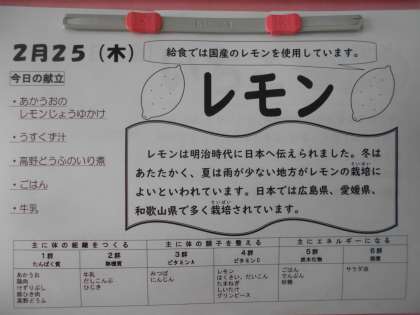 2月25（木）
給食では国産のレモンを使用しています。
今日の献立
レモン
・あかうおの
レモンじょうゆかけ
・うすくず汁
・高野どうふのいり煮
・ごはん
・牛乳
レモンは明治時代に日本へ伝えられました。冬は
あたたかく、夏は雨が少ない地方がレモンの栽培に
よいといわれています。日本では広島県、愛媛県、
和歌山県で多く栽培されています。
主に体の組織をつくる 主に体の調子を整える 主にエネルギーになる
1群 2群 3群 4群 5群 6群
たんぱく質 無機質 ビタミンA ビタミンC 炭水化物 脂質
あかうお 牛乳 みつば レモン ごはん サラダ油
鶏肉 だしこんぶ にんじん はくさい、だいこん でんぷん
けずりぶし ひじき たまねぎ 砂糖
豚ひき肉 しいたけ
高野どうふ グリンピース